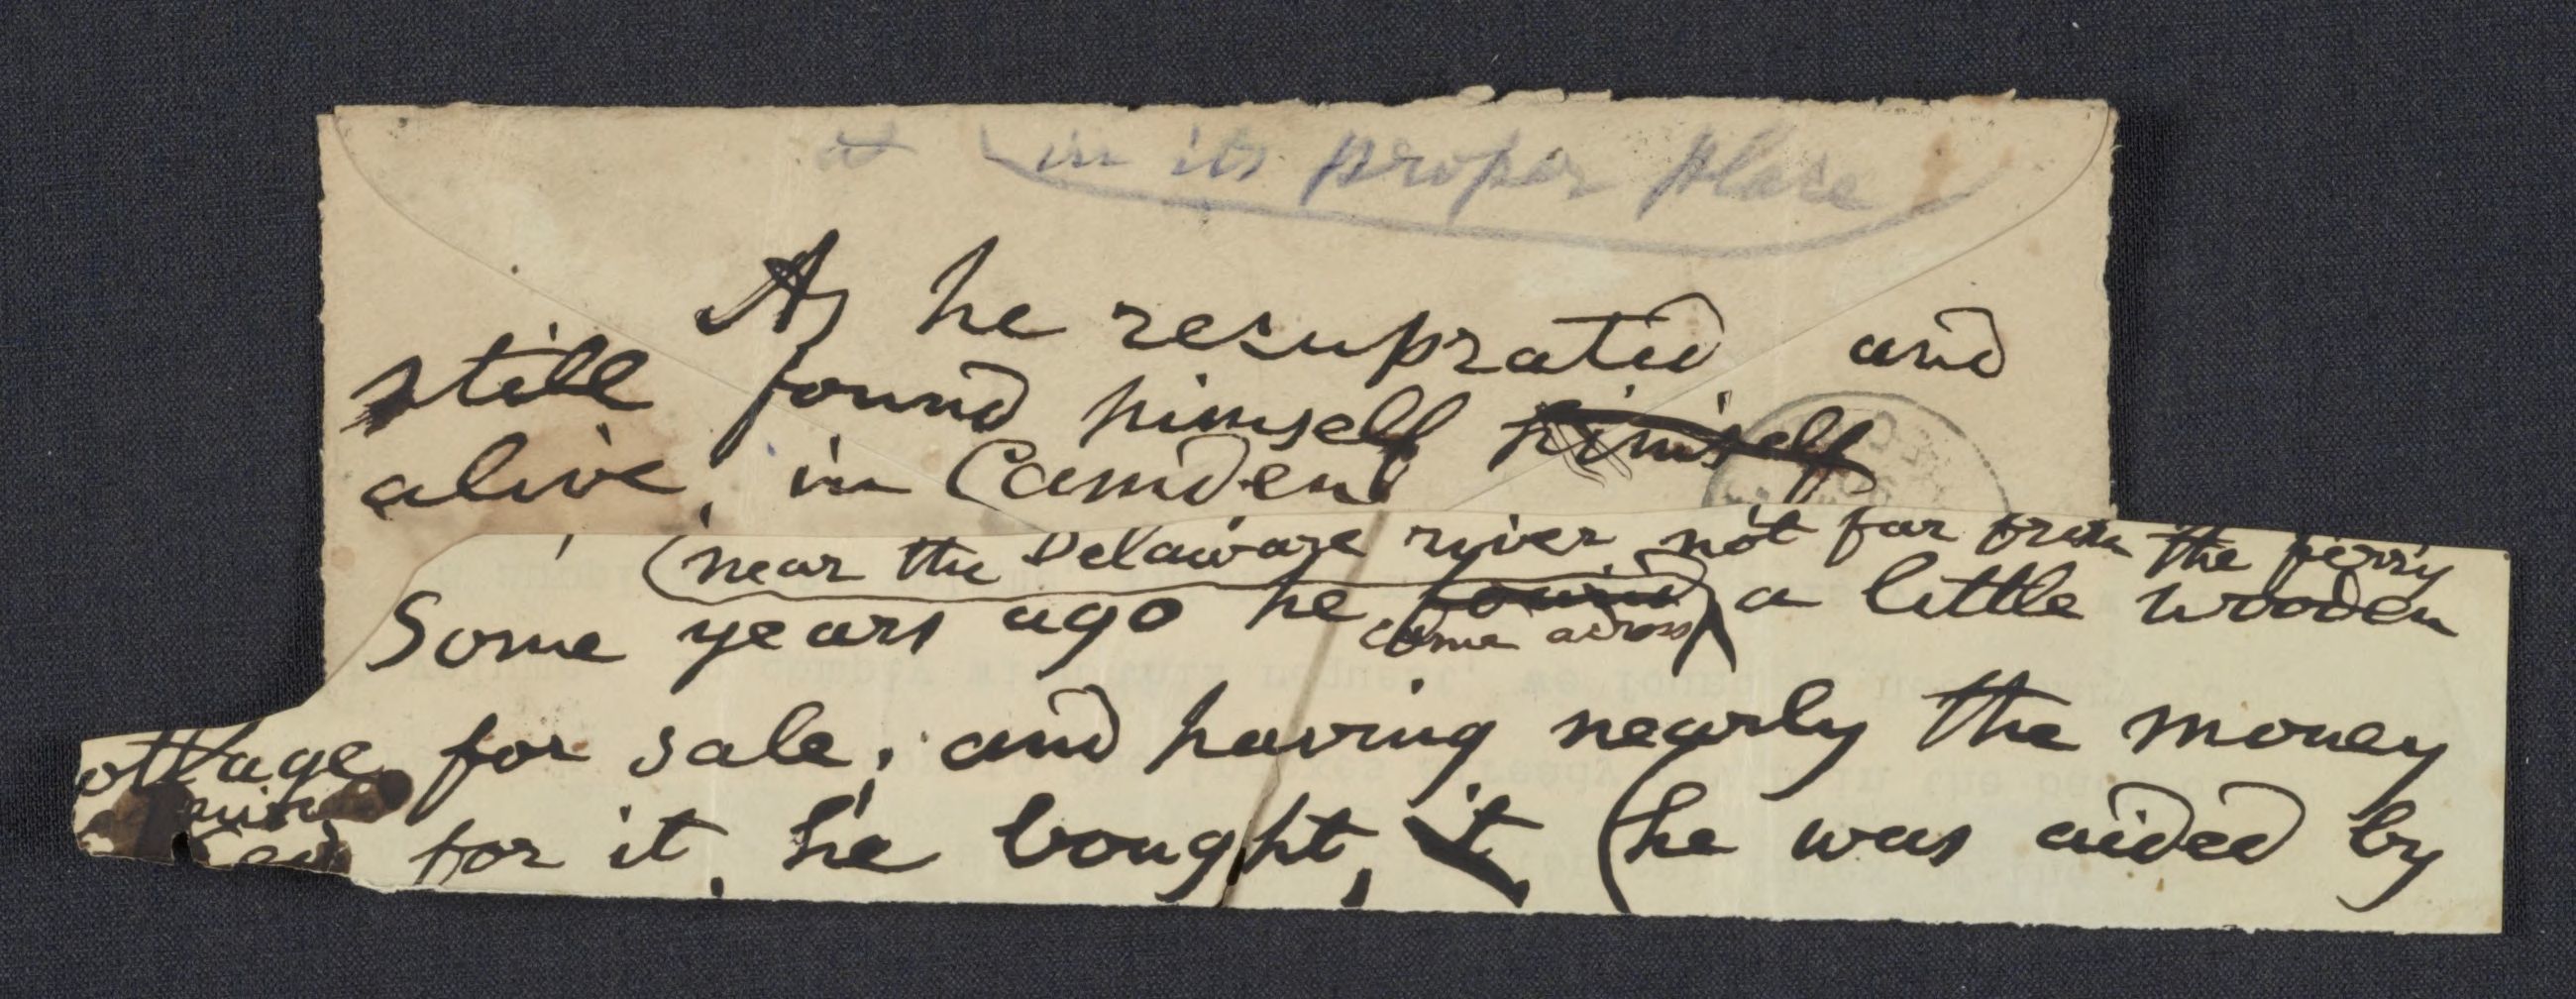 at in its proper place
As he resuprated and
still found himself himself
alive, in Camden
(near the Delaware river, not far from the ferry
Some years ago he found a little wooden
came across
ottage for sale, and having nearly the money
for it, he bought, it (he was aided by